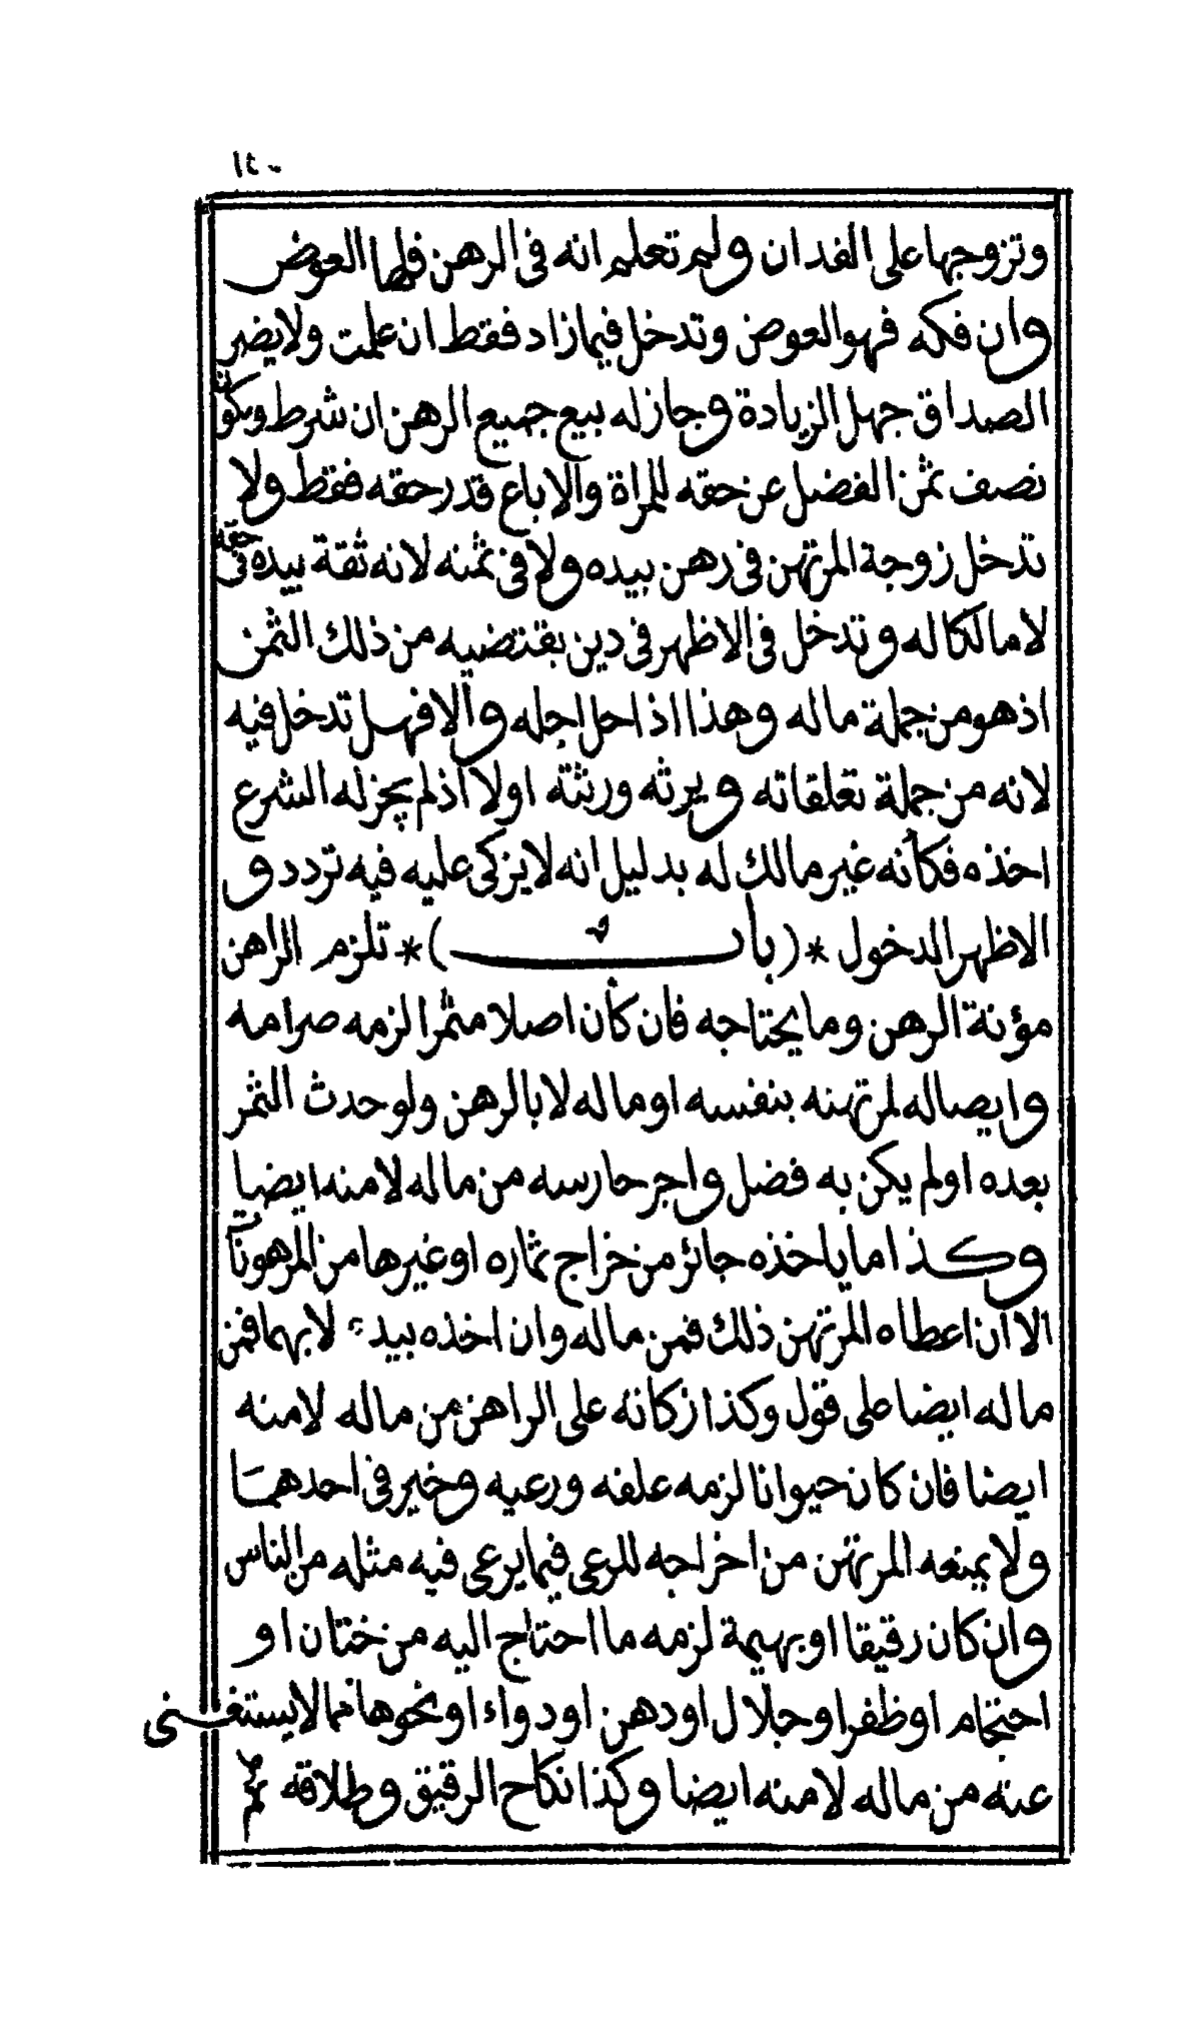 ١٤٠
وتزوجها على الفدان ولم تعلم انه فى الرهن فلها العوض
وان فكه فهو العوض وتدخل فيما زاد فقط ان علمت ولا يضر
الصداق جهل الزيادة وجاز له بيع جميع الرهن ان شرط ويكون
نصف ثمن الفضل عن حقه للمراة والا باع قدر حقه فقط ولا
تدخل زوجة المرتهن فى رهن بيده ولا فى ثمنه لانه ثقة بيده فى حقه
لا مالكا له وتدخل فى الاظهر فى دين يقتضيه من ذلك الثمن
اذ هو من جملة ماله وهذا اذا حل اجله والا فهل تدخل فيه
لانه من جملة تعلقاته ويرثه ورثته اولا اذ لم يجز له الشرع
اخذه فكأنه غير مالك له بدليل انه لا يزكى عليه فيه تردد و
الاظهر الدخول *(باب)* تلزم الراهن
مؤنة الرهن وما يحتاجه فان كان اصلا مثمرا لزمه صرامه
وايصاله لمرتهنه بنفسه او ماله لا بالرهن ولو حدث الثمر
بعده او لم يكن به فضل واجر حارسه من ماله لا منه ايضا
وكذا ما ياخذه جائر من خراج ثماره او غيرها من المرهونات
الا ان اعطاه المرتهن ذلك فمن ماله وان اخذه بيده لا بهما فمن
ماله ايضا على قول وكذا زكاته على الراهن من ماله لا منه
ايضا فان كان حيوانا لزمه علفه ورعيه وخير فى احدهما
ولا يمنعه المرتهن من اخراجه للرعى فيما يرعى فيه مثله من الناس
وان كان رقيقا او بهيمة لزمه ما احتاج اليه من ختان او
احتجام او ظفر او جلال او دهن او دواء او نحوها مما لا يستغنى
عنه من ماله لا منه ايضا وكذا نكاح الرقيق وطلاقه ثم